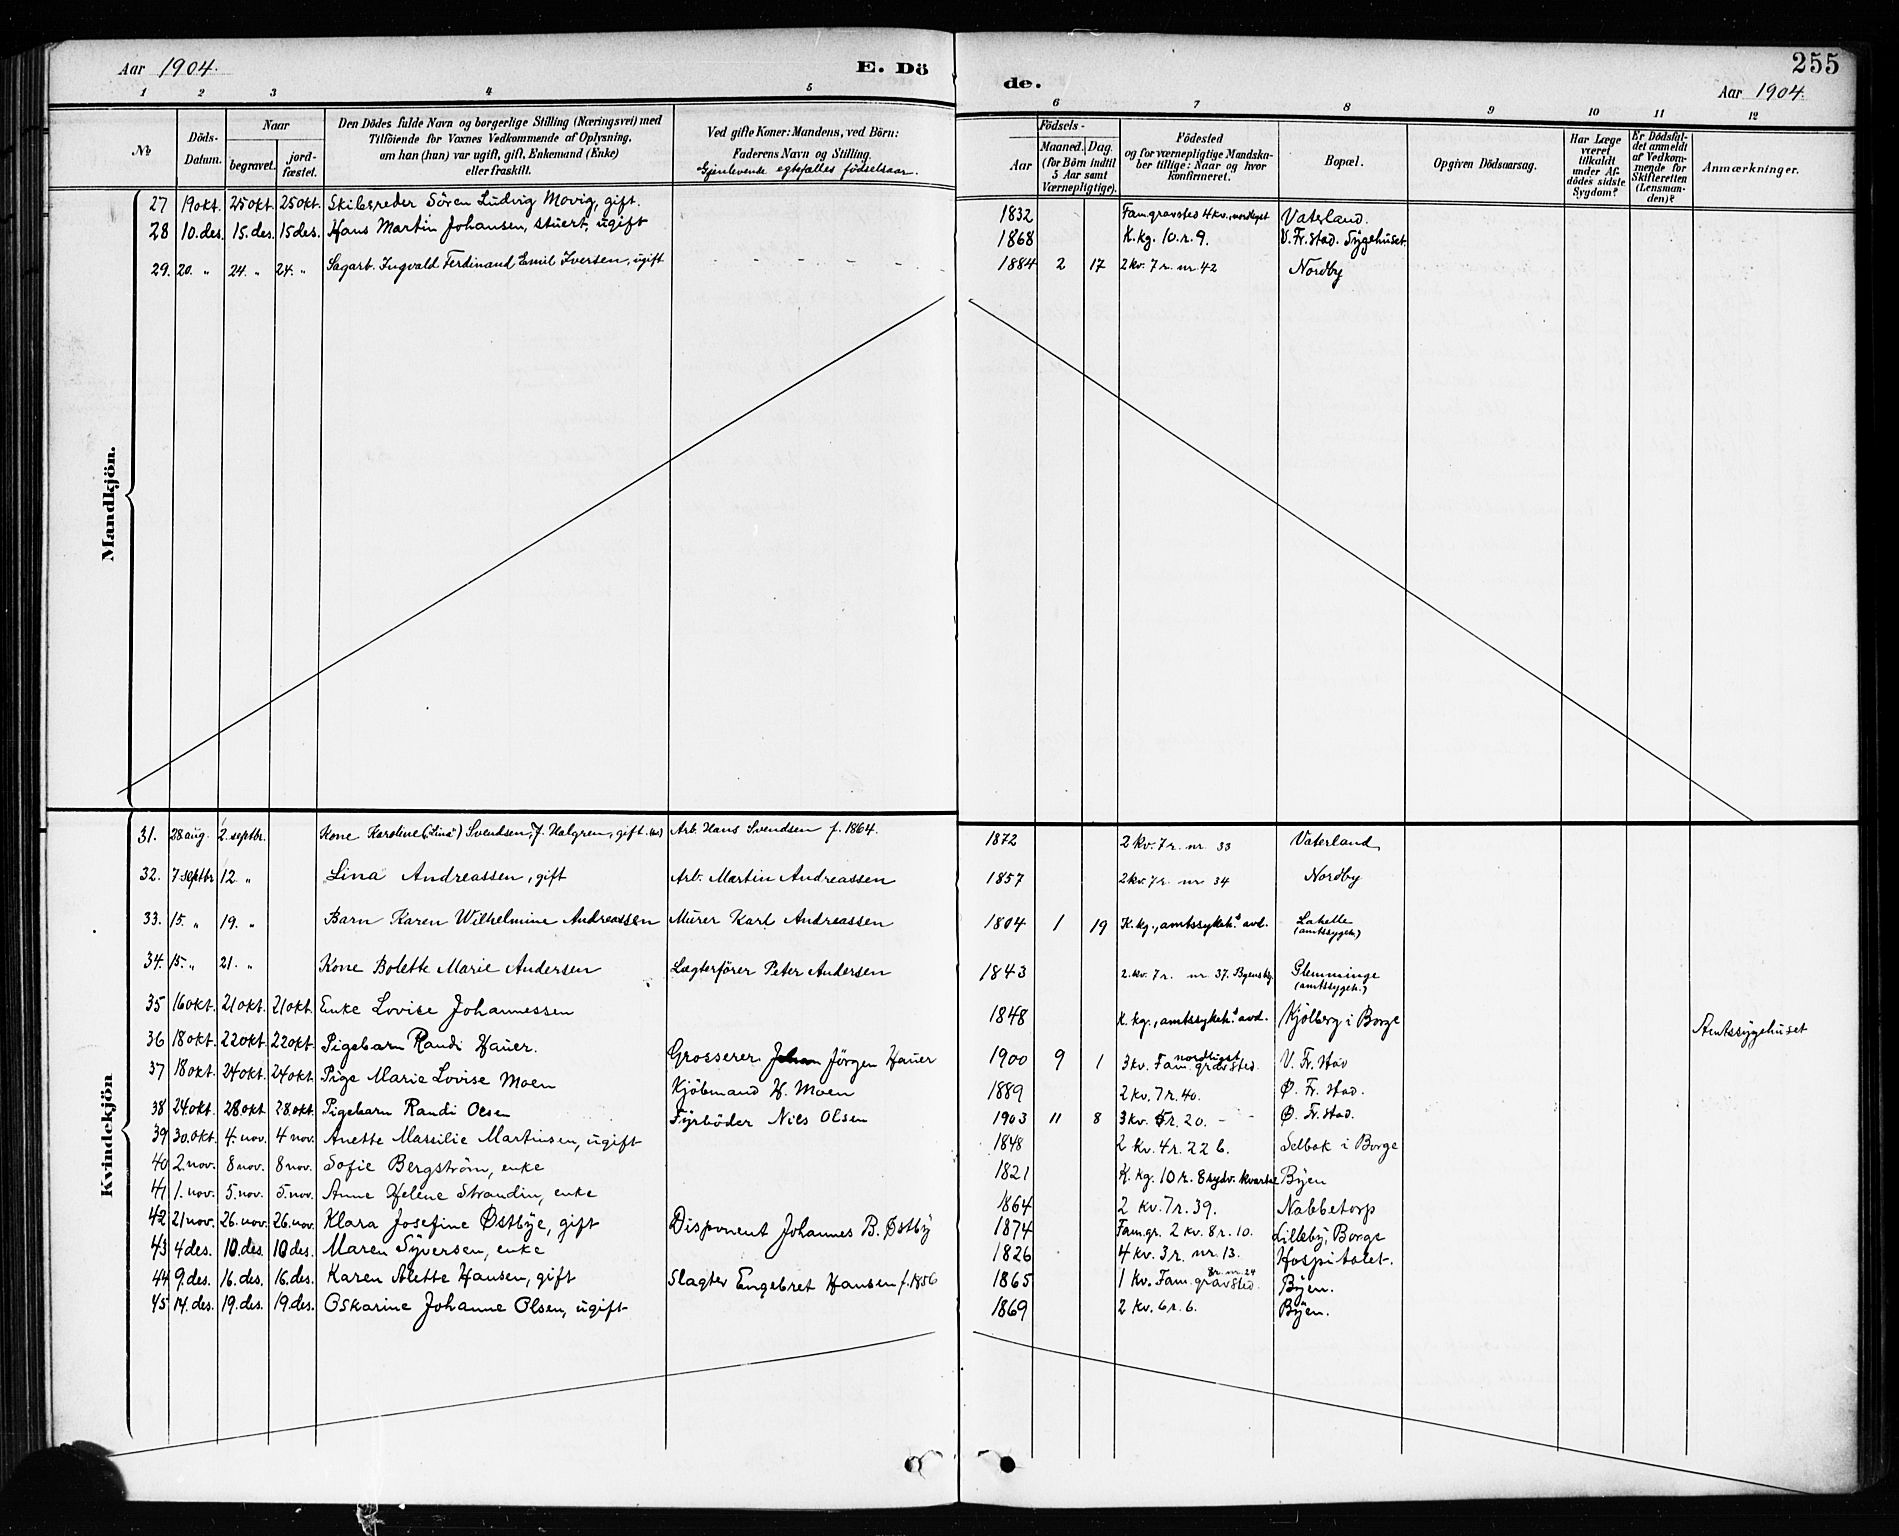 Aar 1904.
E. Dö
de.
255
Aar 1904.
1 2 3 4 5 6 7 8 9 10 11 12
No
Döds-Datum.
Naar
begravet.
jord-fæstet.
Den Dödes fulde Navn og borgerlige Stilling (Næringsvei) med
Tilföiende for Voxnes Vedkommende af Oplysning,
om han (hun) var ugift, gift, Enkemand (Enke)
eller fraskilt.
Ved gifte Koner: Mandens, ved Börn:
Faderens Navn og Stilling.
Gjenlevende egtefælles födselsaar.
Födsels-
Aar
Maaned. Dag.
(for Börn indtil
5 Aar samt
Værnepligtige).
Födested
og for værnepligtige Mandska-
ber tillige: Naar og hvor
konfirmeret.
Bopæl.
Opgiven Dödsaarsag.
Har Læge
været
tilkaldt
under Af-
dödes sidste
Sygdom?
Er Dödsfal-
det anmeldt
af Vedkom-
mende for
Skifteretten
(Lensman-
den)?
Anmærkninger.
Mandkjön.
27 19 okt. 25 okt. 25 okt. Skibsreder Sören Ludvig Movig, gift. 1832 Fam.gravsted 4 kv., nordligst Vaterland.
28 10. des. 15. des. 15 des. Hans Martin Johansen, stuert, ugift 1868 K.kg. 10. r. 9. V. Fr.stad. Sygehuset.
29. 20. " 24. " 24. " Sagarb. Ingvald Ferdinand Emil Iversen, ugift - - - - - 1884 2 17 2 kv. 7 r. nr. 42 Nordby
Kvindekjön
31. 28 aug. 2. septbr. Kone Karoline ("Lina") Svendsen, f. Halgren, gift. Arb. Hans Svendsen f. 1864. 1872 2 kv. 7 r. nr. 33 Vaterland
32. 7 septbr 12 " Lina Andreassen, gift Arb. Martin Andreassen 1857 2 kv. 7 r. nr 34 Nordby
33. 15. " 19. " Barn Karen Wilhelmine Andreassen Murer Karl Andreassen 1804 1 19 K.kg., amtssykeh.s avd. Lahelle (amtssygeh.)
34. 15. " 21. " Kone Bolette Marie Andersen Lægterförer Peter Andersen 1843 2. kv. 7 r. nr. 37. Glemminge (amtssygeh.)
35 16 okt. 21 okt. 21 okt. Enke Lovise Johannessen 1848 K.kg., amtssykeh.s avd. Kjölberg i Borge Amtssygehuset
36 18 okt. 22 okt. 22 okt. Pigebarn Randi Hauer. Grosserer Jörgen Hauer 1900 9 1 3 kv. Fam. gravsted. nordligst V. Fr. stad
37 18 okt. 24 okt. 24 okt. Pige Marie Lovise Moen Kjöbmand H. Moen 1889 2 kv. 7 r. 40. Ø. Fr. stad.
38 24 okt. 28 okt 28. okt. Pigebarn Randi Olsen Fyrböder Nils Olsen 1903 11 8 3 kv. 5 r. 20. - - Ø. Fr. stad.
39 30. okt. 4. nov. 4 nov. Anette Massilie Martinsen, ugift 1848 2 kv. 4 r. 22 b. Selbak i Borge
40 2. nov. 8 nov. 8 nov. Sofie Bergström, enke 1821 K.kg. 10 r. 8 Byen
41 1. nov. 5. nov. 5. nov. Anne Helene Strandin, enke 1864 2 kv. 7 r. 39. Nabbetorp
42 21 nov. 26. nov. 26. nov. Klara Josefine Østbye, gift Disponent Johannes B. Østby 1874 Fam.gr. 2 kv. 8 r. 10. Lilleby, Borge
43 4 des. 10. des. 10 des. Maren Syversen, enke 1826 4 kv. 3 r. nr. 13. Hospitalet.
44 9. des. 16. des. 16. des. Karen Alette Hansen, gift Slagter Engebret Hansen f. 1856 1865 1 kv. Fam. gravsted. 8 r. nr. 24 Byen.
45 14. des. 19. des. 19. des. Oskarine Johanne Olsen, ugift 1869 2 kv. 6 r. 6. Byen.